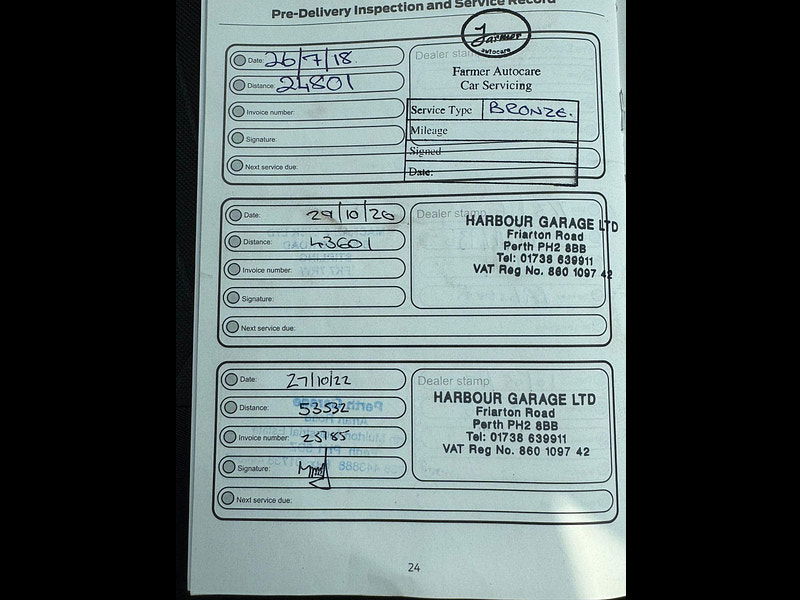 Pre-Delivery Inspection and Service Record
Farmer
autocare
Date: 26/7/18
Dealer stamp
Distance: 24801
Farmer Autocare
Car Servicing
Invoice number:
Service Type BRONZE.
Signature:
Mileage
Signed
Next service due:
Date:
Date: 29/10/20
Dealer stamp
Distance: 43601
HARBOUR GARAGE LTD
Friarton Road
Perth PH2 8BB
Tel: 01738 639911
VAT Reg No. 860 1097 42
Invoice number:
Signature:
Next service due:
Date: 27/10/22
Dealer stamp
Distance: 53532
HARBOUR GARAGE LTD
Friarton Road
Perth PH2 8BB
Tel: 01738 639911
VAT Reg No. 860 1097 42
Invoice number: 25785
Signature:
Next service due:
24